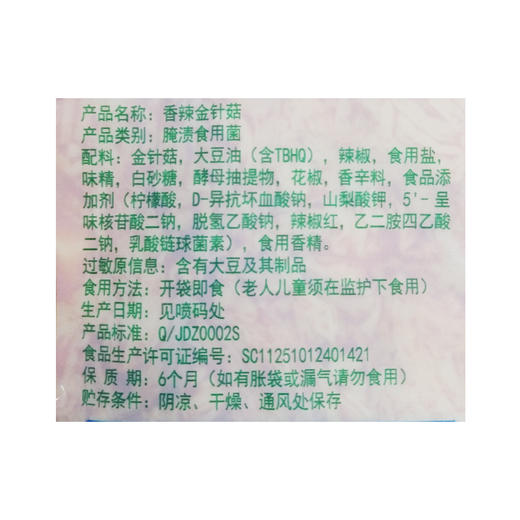 产品名称：香辣金针菇
产品类别：腌渍食用菌
配料：金针菇，大豆油（含TBHQ），辣椒，食用盐，
味精，白砂糖，酵母抽提物，花椒，香辛料，食品添
加剂（柠檬酸，D-异抗坏血酸钠，山梨酸钾，5'-呈
味核苷酸二钠，脱氢乙酸钠，辣椒红，乙二胺四乙酸
二钠，乳酸链球菌素），食用香精。
过敏原信息：含有大豆及其制品
食用方法：开袋即食（老人儿童须在监护下食用）
生产日期：见喷码处
产品标准：Q/JDZ0002S
食品生产许可证编号：SC11251012401421
保质期：6个月（如有胀袋或漏气请勿食用）
贮存条件：阴凉、干燥、通风处保存